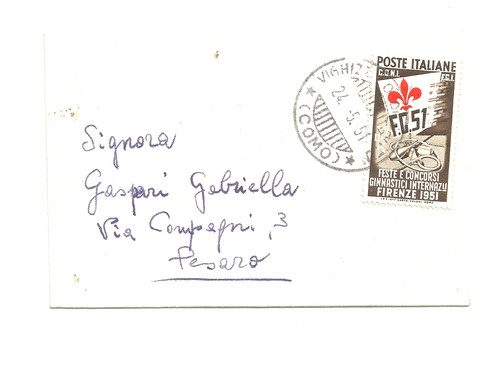 POSTE ITALIANE
C.O.N.I. F.G.I.
F.G.51
FESTE E CONCORSI
GINNASTICI INTERNAZLI
FIRENZE 1951
VIGHIZZOLO
24.5.51
(COMO)
Signora
Gaspari Gabriella
Via Compagni, 3
Pesaro